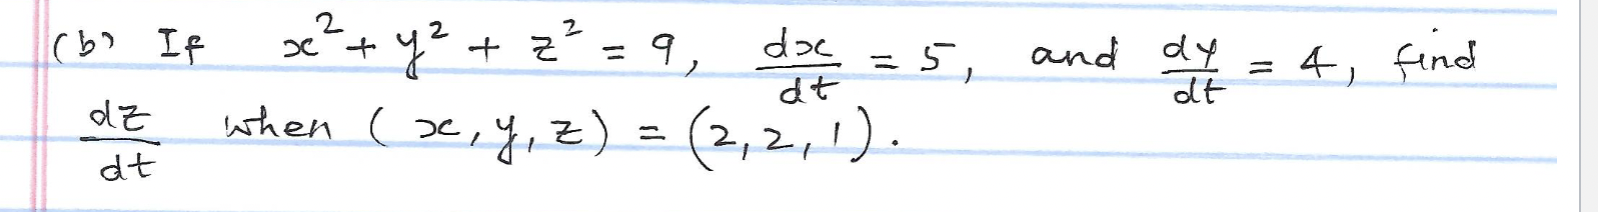 (b) If x² + y² + z² = 9, dx/dt = 5, and dy/dt = 4, find
dz/dt when (x, y, z) = (2, 2, 1).